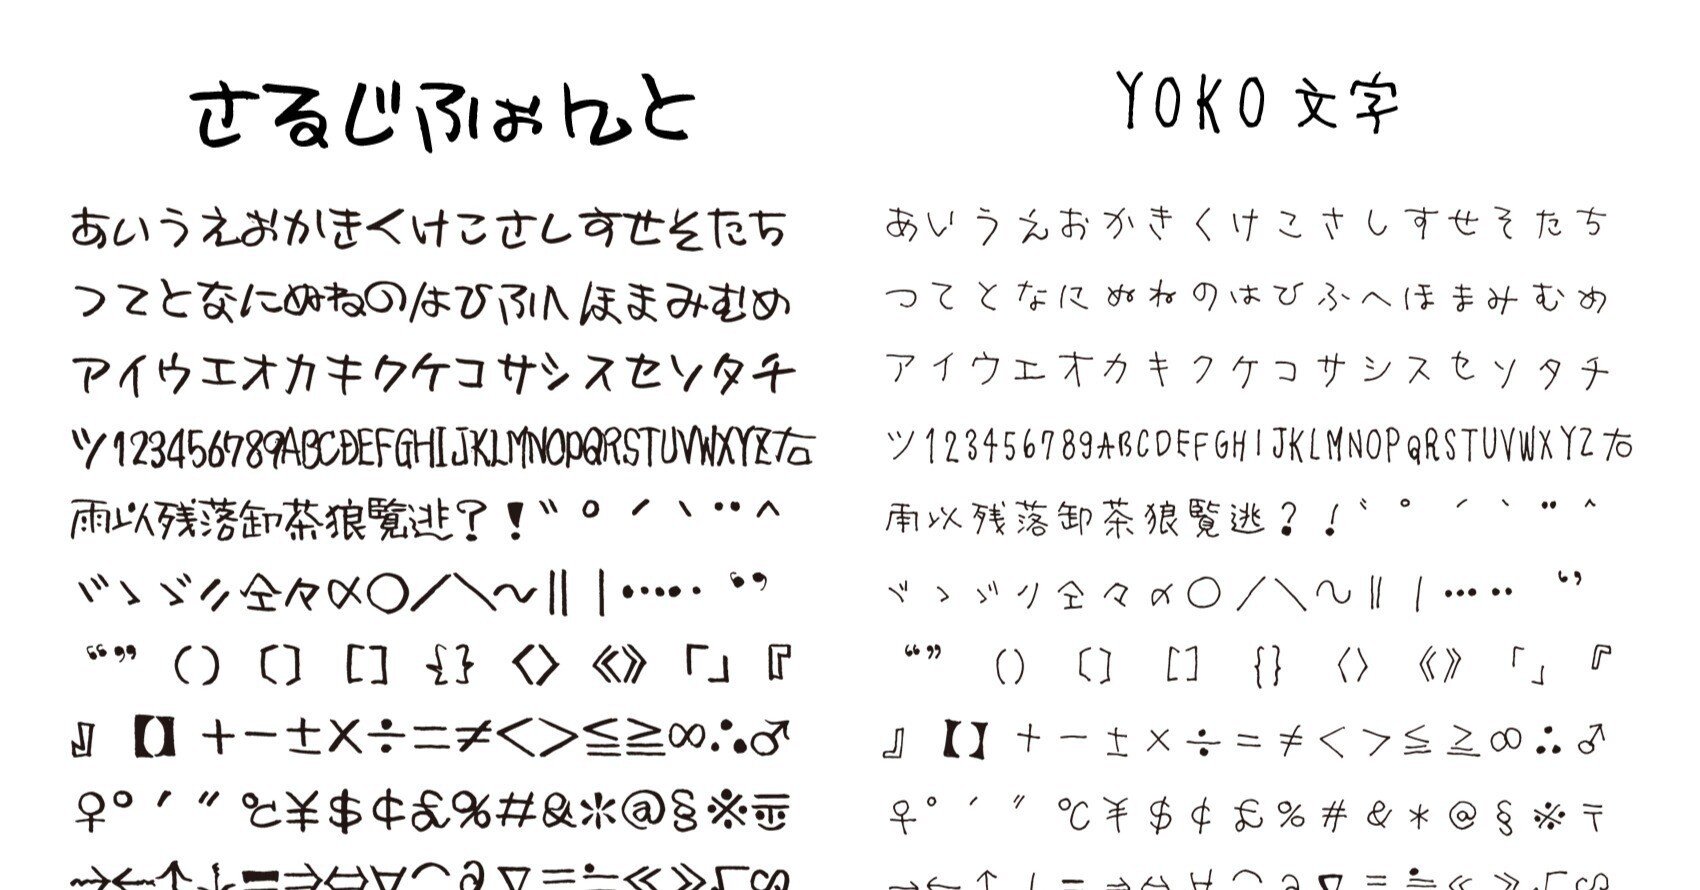 さるじふぉんと
あいうえおかきくけこさしすせそたち
つてとなにぬねのはひふへほまみむめ
アイウエオカキクケコサシスセソタチ
ツ123456789ABCDEFGHIJKLMNOPQRSTUVWXYZ右
雨以残落卸茶狼覧逃?!゛゜´｀¨＾
ヾゝゞ〃仝々〆〇／＼～∥｜…‥‘’
“”()〔〕[]{}〈〉《》「」『
』【】＋－±×÷＝≠＜＞≦≧∞∴♂
♀°′″℃¥$¢£%#&*@§※〒
→←↑↓〓⇒⇔∀⌒∂∇≡≒≪≫√∽
YOKO文字
あいうえおかきくけこさしすせそたち
つてとなにぬねのはひふへほまみむめ
アイウエオカキクケコサシスセソタチ
ツ123456789ABCDEFGHIJKLMNOPQRSTUVWXYZ右
雨以残落卸茶狼覧逃?!゛゜´｀¨＾
ヾゝゞ〃仝々〆〇／＼～∥｜…‥‘’
“”()〔〕[]{}〈〉《》「」『
』【】＋－±×÷＝≠＜＞≦≧∞∴♂
♀°′″℃¥$¢£%#&*@§※〒
→←↑↓〓⇒⇔∀⌒∂∇≡≒≪≫√∽